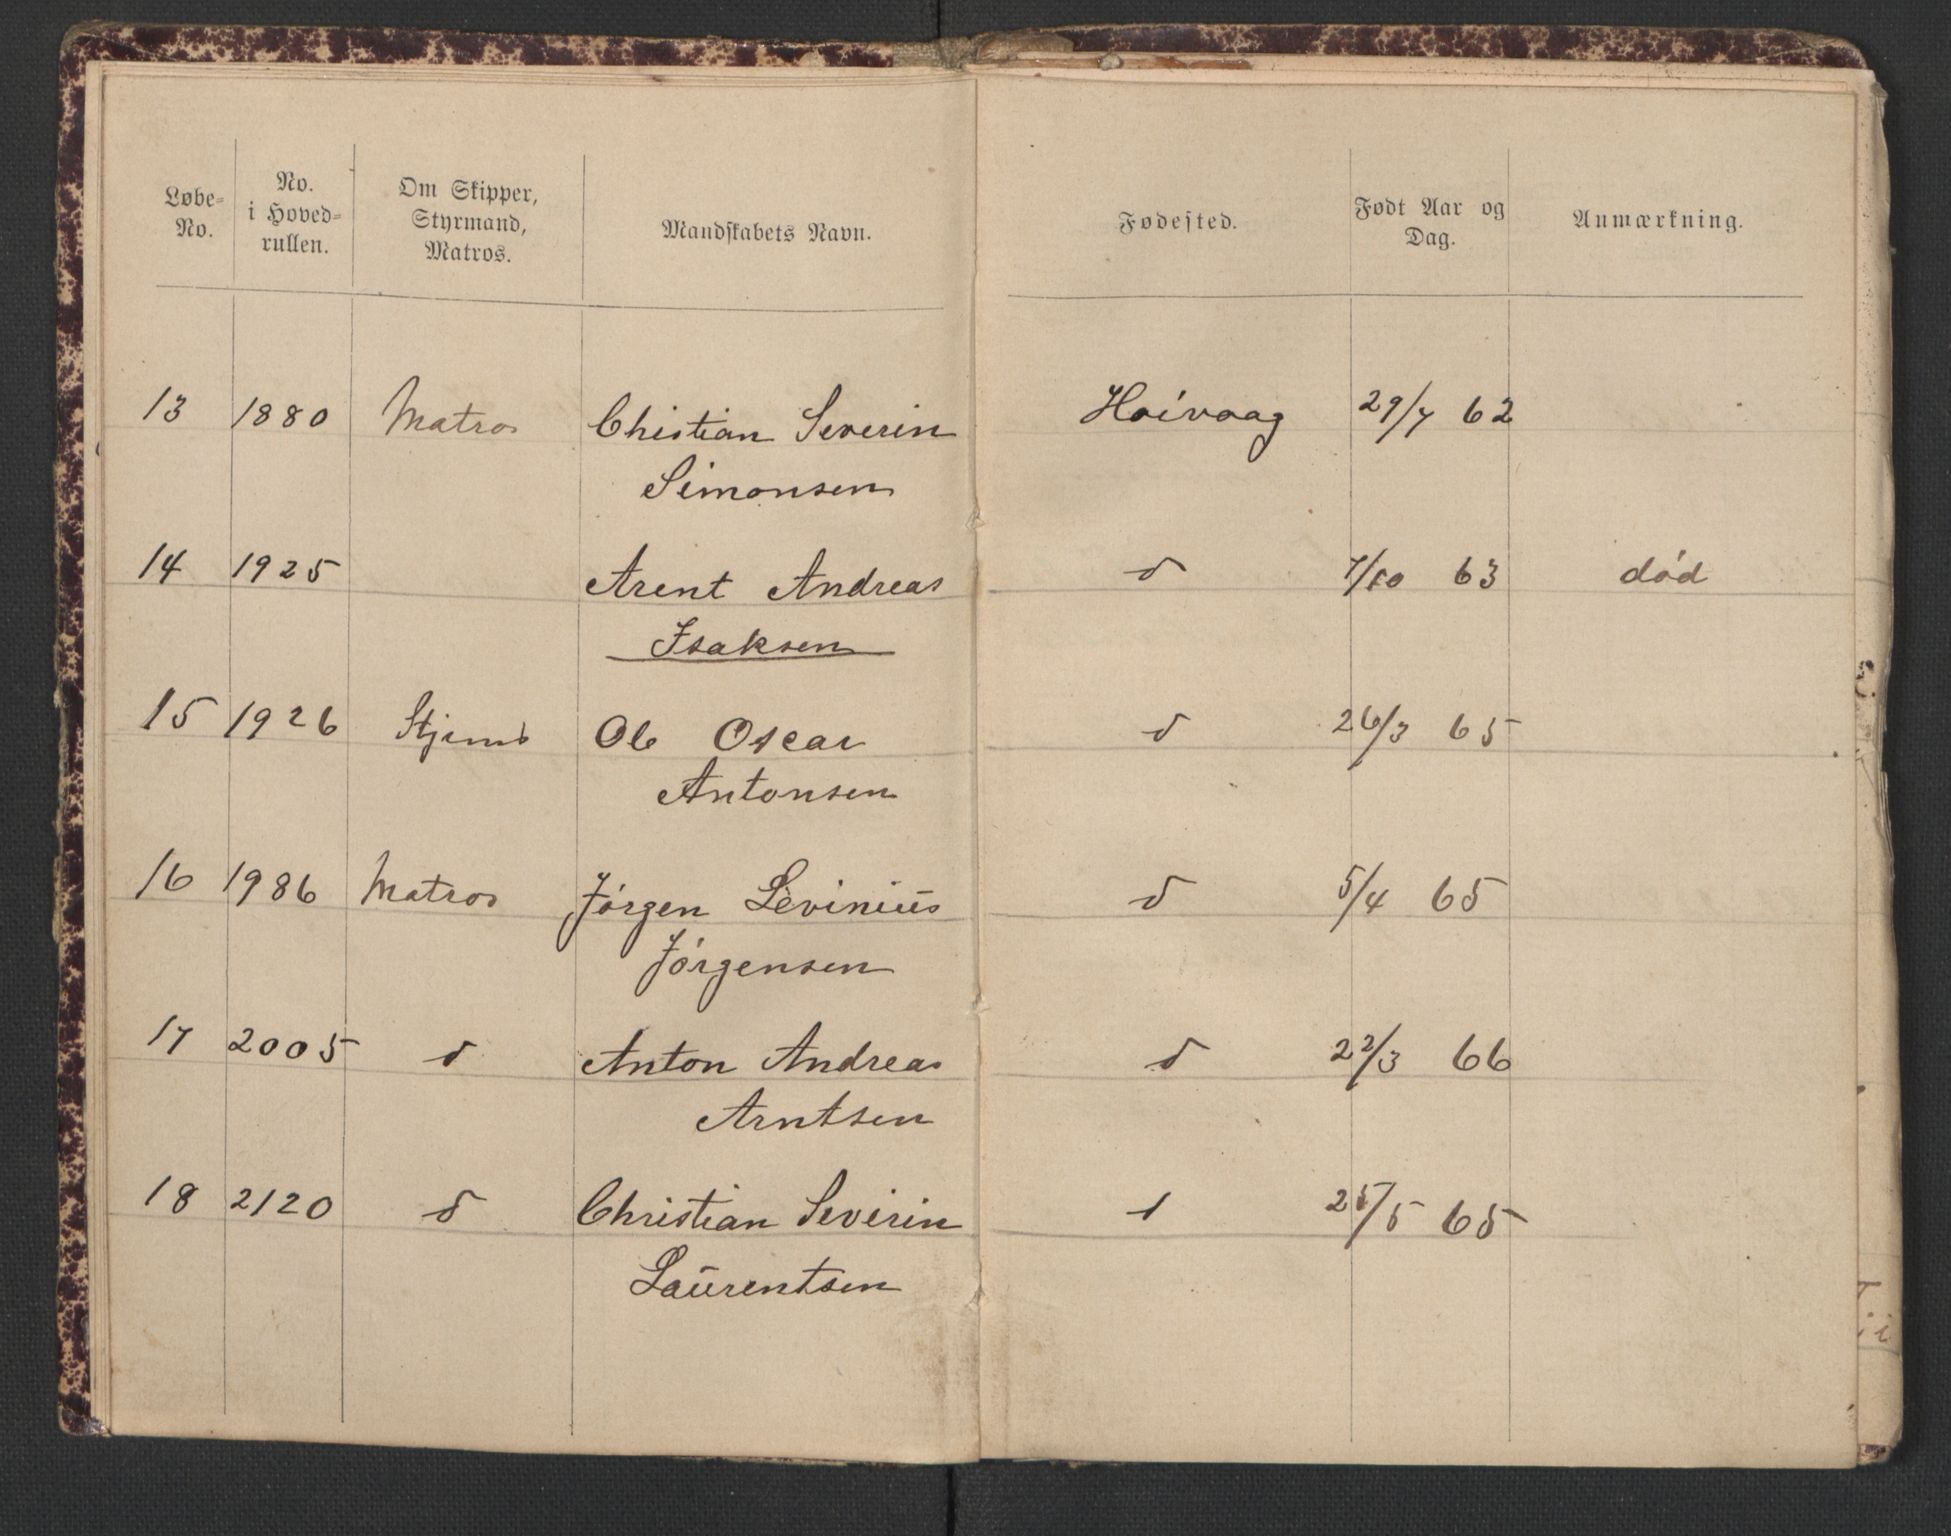 Løbe-No. No. i Hoved-rullen. Om Skipper, Styrmand, Matros. Mandskabets Navn. Fødested. Født Aar og Dag. Anmærkning.
13 1880 Matros Christian Severin Hoivaag 29/7 62
Simonsen
14 1925 Arent Andreas d 7/10 63 død
Isaksen
15 1926 Stjrmd Ole Oscar d 26/3 65
Antonsen
16 1986 Matros Jørgen Levinius d 5/4 65
Jørgensen
17 2005 d Anton Andreas d 22/3 66
Arntsen
18 2120 d Christian Severin d 25/5 65
Laurentsen